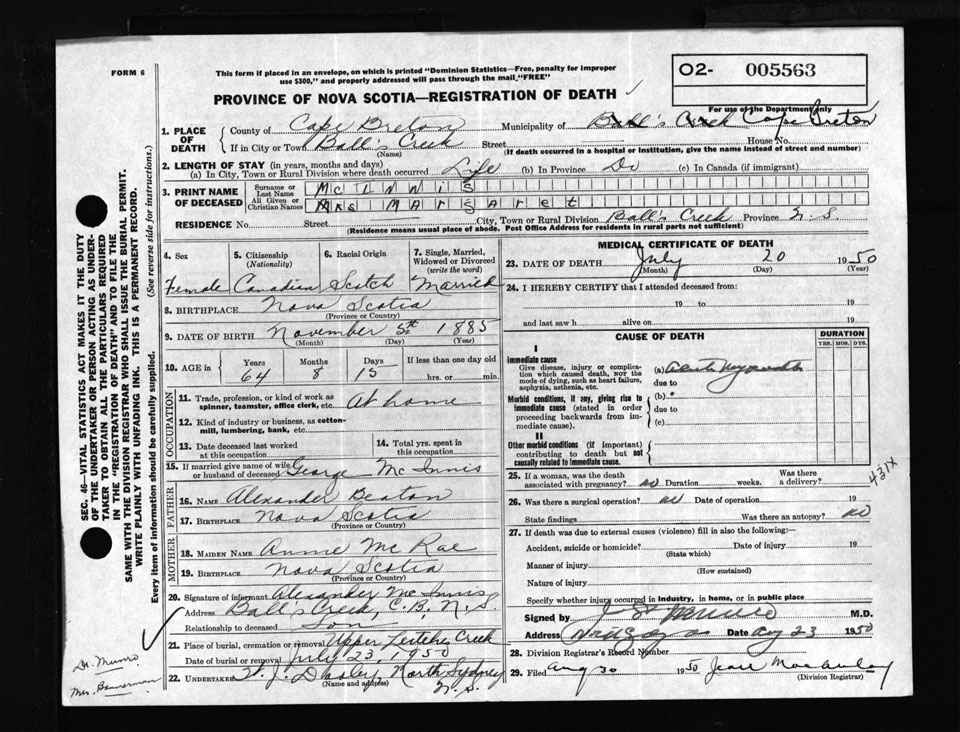 FORM 6
This form if placed in an envelope, on which is printed "Dominion Statistics—Free, penalty for improper
use $300," and properly addressed will pass through the mail "FREE"
O2- 005563
For use of the Department only
PROVINCE OF NOVA SCOTIA—REGISTRATION OF DEATH
1. PLACE OF DEATH
County of Cape Breton Municipality of Ball's Creek Cape Breton
If in City or Town Ball's Creek Street House No.
(Name) (If death occurred in a hospital or institution, give the name instead of street and number)
2. LENGTH OF STAY (in years, months and days)
(a) In City, Town or Rural Division where death occurred Life (b) In Province Do (c) In Canada (if immigrant)
3. PRINT NAME OF DECEASED
Surname or Last Name McInnis
All Given or Christian Names Mrs Margaret
RESIDENCE No. Street City, Town or Rural Division Ball's Creek Province N.S
(Residence means usual place of abode. Post Office Address for residents in rural parts not sufficient)
4. Sex 5. Citizenship (Nationality) 6. Racial Origin 7. Single, Married, Widowed or Divorced (write the word)
Female Canadian Scotch Married
8. BIRTHPLACE Nova Scotia
(Province or Country)
9. DATE OF BIRTH November 5th 1885
(Month) (Day) (Year)
10. AGE in Years Months Days If less than one day old
64 8 15 hrs. or min.
OCCUPATION
11. Trade, profession, or kind of work as
spinner, teamster, office clerk, etc. At home
12. Kind of industry or business, as cotton-
mill, lumbering, bank, etc.
13. Date deceased last worked
at this occupation
14. Total yrs. spent in
this occupation
15. If married give name of wife
or husband of deceased George McInnis
FATHER
16. NAME Alexander Beaton
17. BIRTHPLACE Nova Scotia
(Province or Country)
MOTHER
18. MAIDEN NAME Annie McRae
19. BIRTHPLACE Nova Scotia
(Province or Country)
20. Signature of informant Alexander McInnis
Address Ball's Creek, C.B. N.S.
Relationship to deceased Son
21. Place of burial, cremation or removal Upper Leitches Creek
Date of burial or removal July 23, 1950
22. UNDERTAKER North Sydney
(Name and address) N.S.
MEDICAL CERTIFICATE OF DEATH
23. DATE OF DEATH July 20 1950
(Month) (Day) (Year)
24. I HEREBY CERTIFY that I attended deceased from:
19 to 19
and last saw h alive on 19
CAUSE OF DEATH
DURATION
YRS. MOS. DYS.
I
Immediate cause
Give disease, injury or complica-
tion which caused death, NOT the
mode of dying, such as heart failure,
asphyxia, asthenia, etc.
(a) Acute
due to
Morbid conditions, if any, giving rise to
immediate cause (stated in order
proceeding backwards from im-
mediate cause).
(b)
due to
(c)
II
Other morbid conditions (if important)
contributing to death but not
causally related to immediate cause.
25. If a woman, was the death
associated with pregnancy? no Duration weeks. Was there
a delivery?
431X
26. Was there a surgical operation? no Date of operation 19
State findings Was there an autopsy? no
27. If death was due to external causes (violence) fill in also the following:—
Accident, suicide or homicide? Date of injury 19
(State which)
Manner of injury
(How sustained)
Nature of injury
Specify whether injury occurred in industry, in home, or in public place
Signed by M.D.
Address Date Aug 23 1950
28. Division Registrar's Record Number
29. Filed Aug 30 1950
(Division Registrar)
SEC. 46—VITAL STATISTICS ACT MAKES IT THE DUTY
OF THE UNDERTAKER OR PERSON ACTING AS UNDER-
TAKER TO OBTAIN ALL THE PARTICULARS REQUIRED
IN THE "REGISTRATION OF DEATH" AND TO FILE THE
SAME WITH THE DIVISION REGISTRAR WHO SHALL ISSUE THE BURIAL PERMIT.
WRITE PLAINLY WITH UNFADING INK. THIS IS A PERMANENT RECORD.
Every item of information should be carefully supplied. (See reverse side for instructions.)
Dr. Munro
Mrs. Bannerman